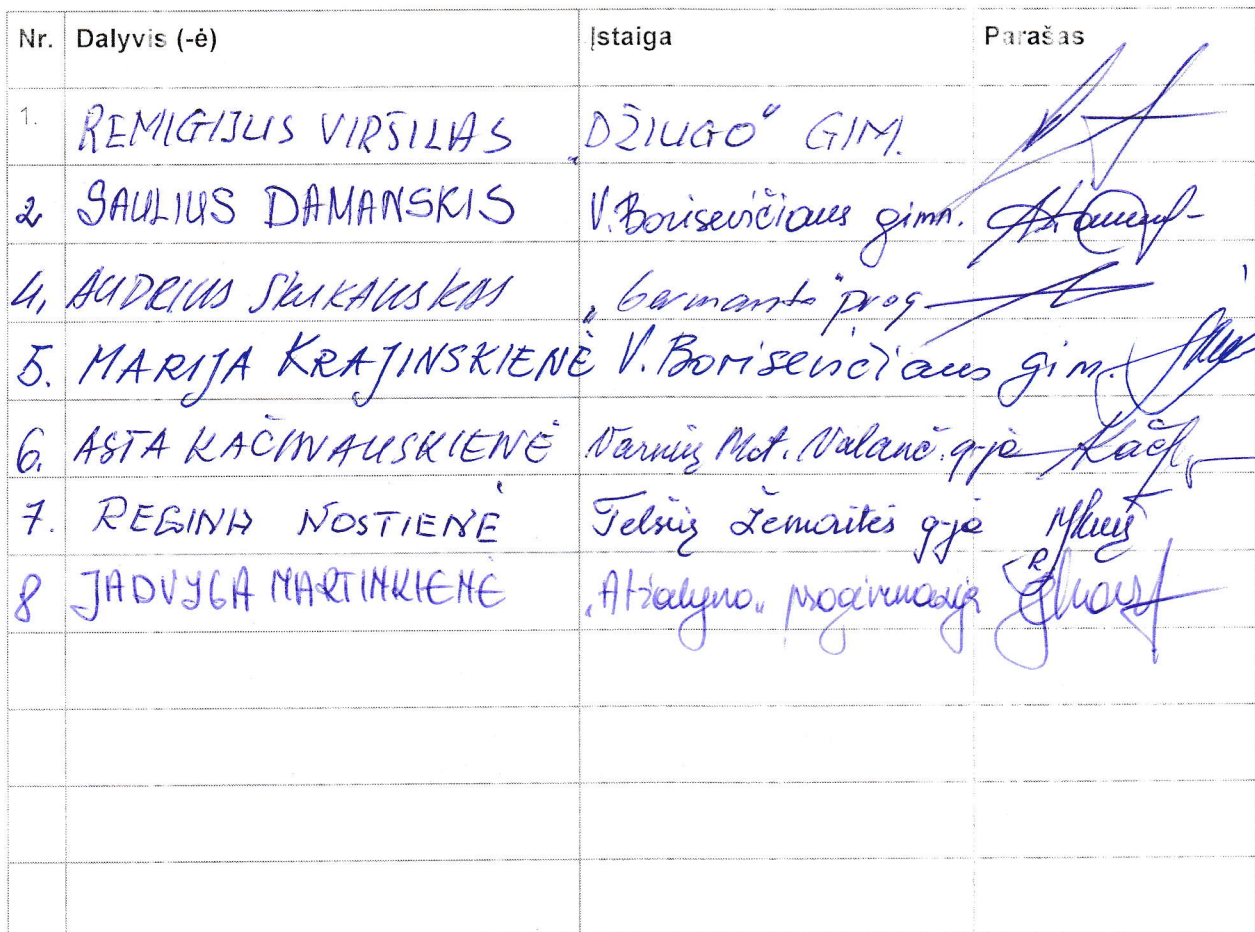 Nr. Dalyvis (-ė) Įstaiga Parašas
1. REMIGIJUS VIRŠILAS „DŽIUGO" GIM.
2 SAULIUS DAMANSKIS V. Borisevičiaus gimn.
4. AUDRIUS „Germanto" prog
5. MARIJA KRAJINSKIENĖ V. Borisevičiaus gim.
6. ASTA KAČINAUSKIENĖ Varnių Mot. Valanč. g-ja
7. REGINA NOSTIENĖ Telšių Žemaitės g-ja
8 JADVYGA MARTINKIENĖ „Atžalyno„ progimnazija